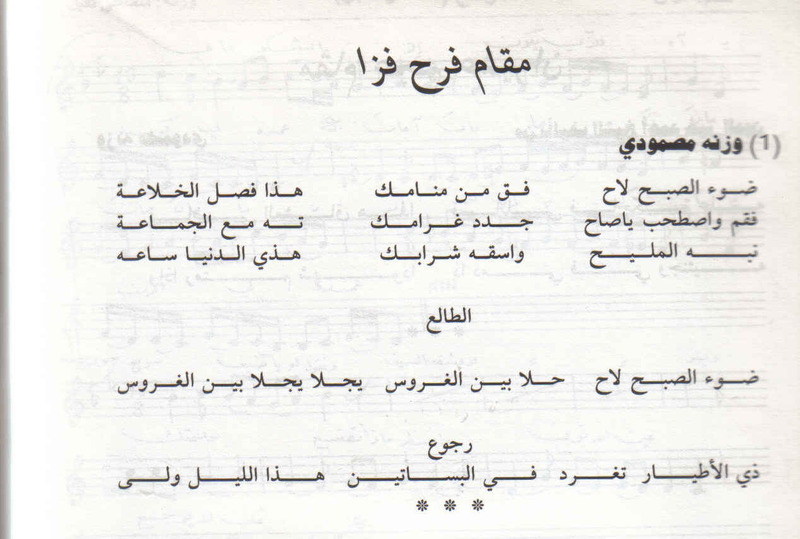 مقام فرح فزا
(1) وزنه مصمودي
ضوء الصبح لاح فق من منامك هذا فصل الخلاعة
فقم واصطحب ياصاح جدد غرامك ته مع الجماعة
نبه المليح واسقه شرابك هذي الدنيا ساعه
الطالع
ضوء الصبح لاح حلا بين الغروس يجلا يجلا بين الغروس
رجوع
ذي الأطيار تغرد في البساتين هذا الليل ولى
* * *